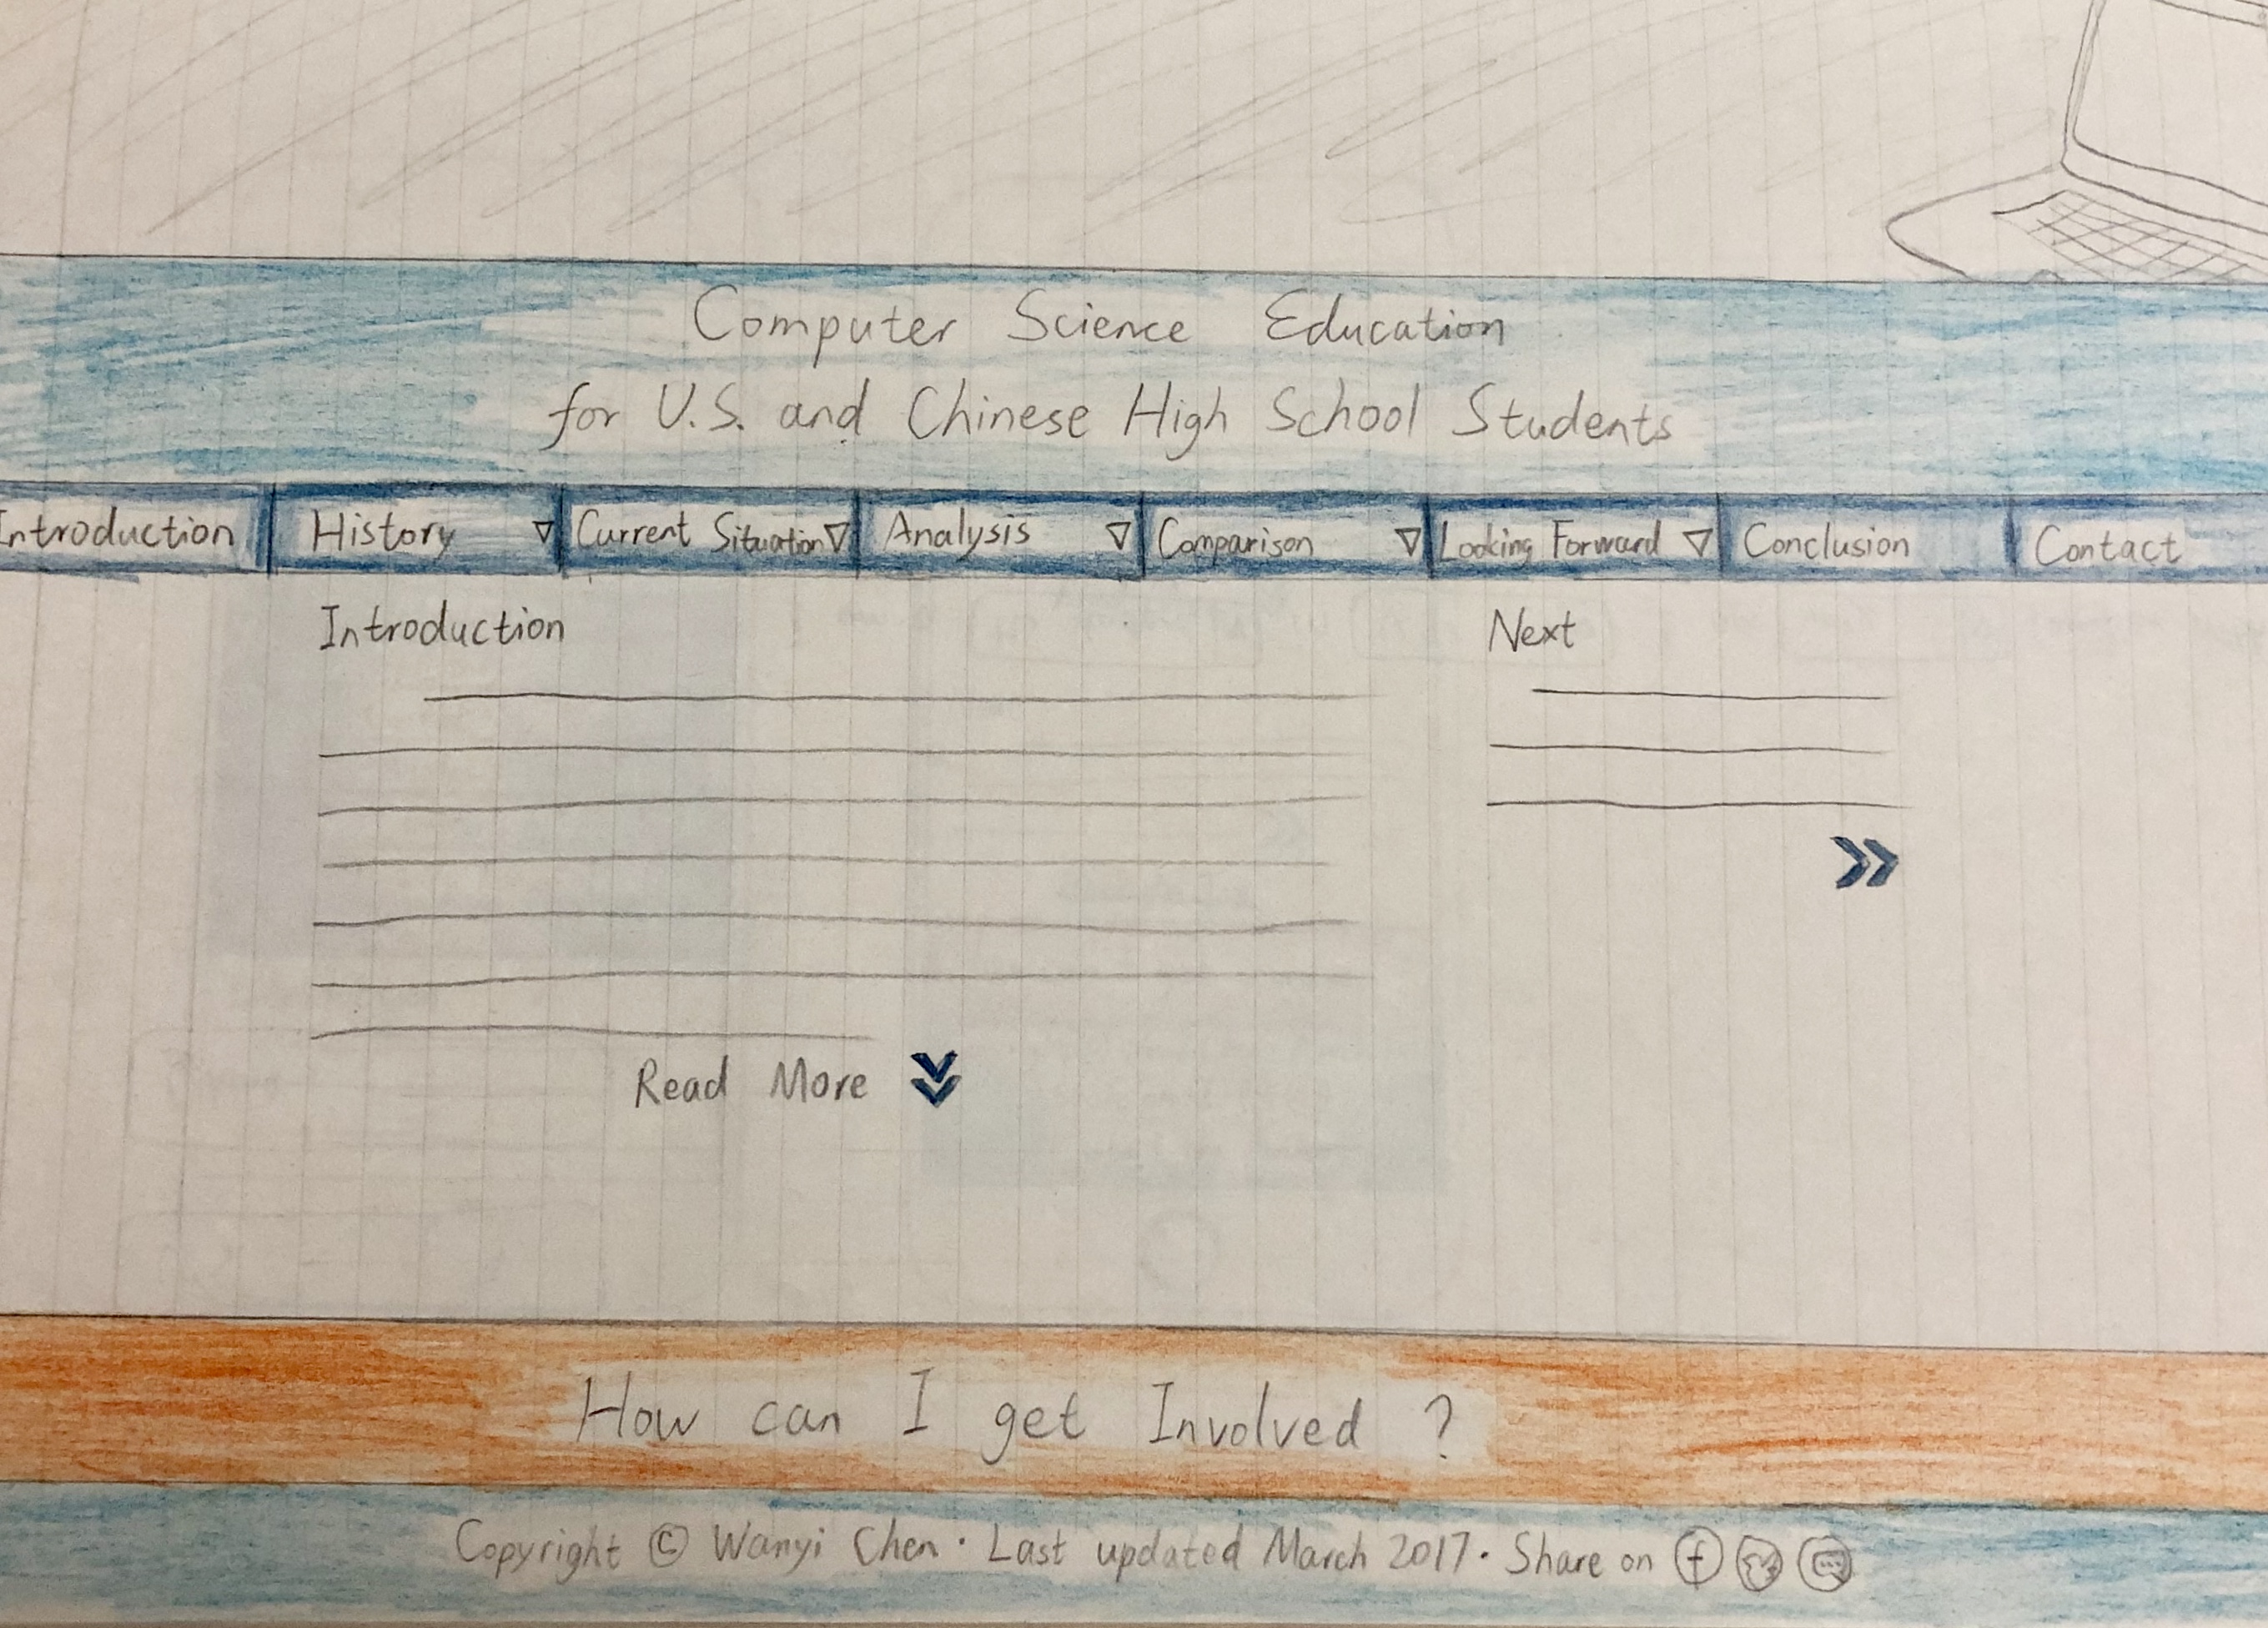 Computer Science Education
for U.S. and Chinese High School Students
Introduction
History
Current Situation
Analysis
Comparison
Looking Forward
Conclusion
Contact
Introduction
Next
Read More
How can I get Involved ?
Copyright © Wanyi Chen · Last updated March 2017 · Share on f